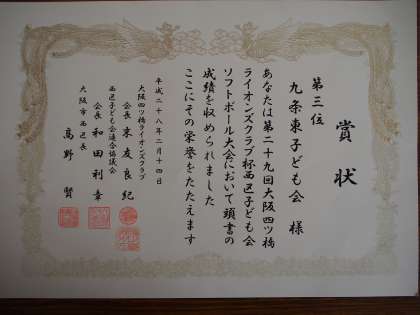 賞状
第三位
九条東子ども会 様
あなたは第二十九回大阪四ツ橋
ライオンズクラブ杯西区子ども会
ソフトボール大会において頭書の
成績を収められました
ここにその栄誉をたたえます
平成二十八年二月十四日
大阪四ツ橋ライオンズクラブ
会長 末友良紀
西区子ども会連合協議会
会長 和田利幸
大阪市西区長
高野 賢